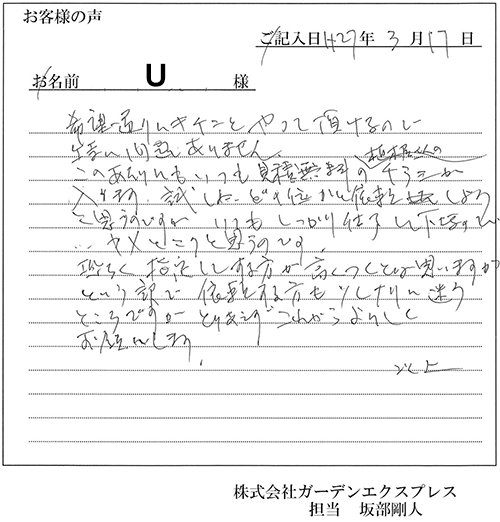 お客様の声
ご記入日 H27年 3月17日
お名前 U 様
希望通りにキチンとやって頂けるので
問題ありません。
このあたりにもいつも見積無料の植木屋さんのチラシが
入ります。試しに、どの位かと依頼しよう
と思うのですが いつもしっかり仕事して下さるので
…ヤメとこうと思うのです。
指定をする方が高くつくとは思いますが
という訳で 依頼する方も少しだけ迷う
ところですが とりあえず これからよろしく
お願いします。
以上
株式会社ガーデンエクスプレス
担当 坂部剛人